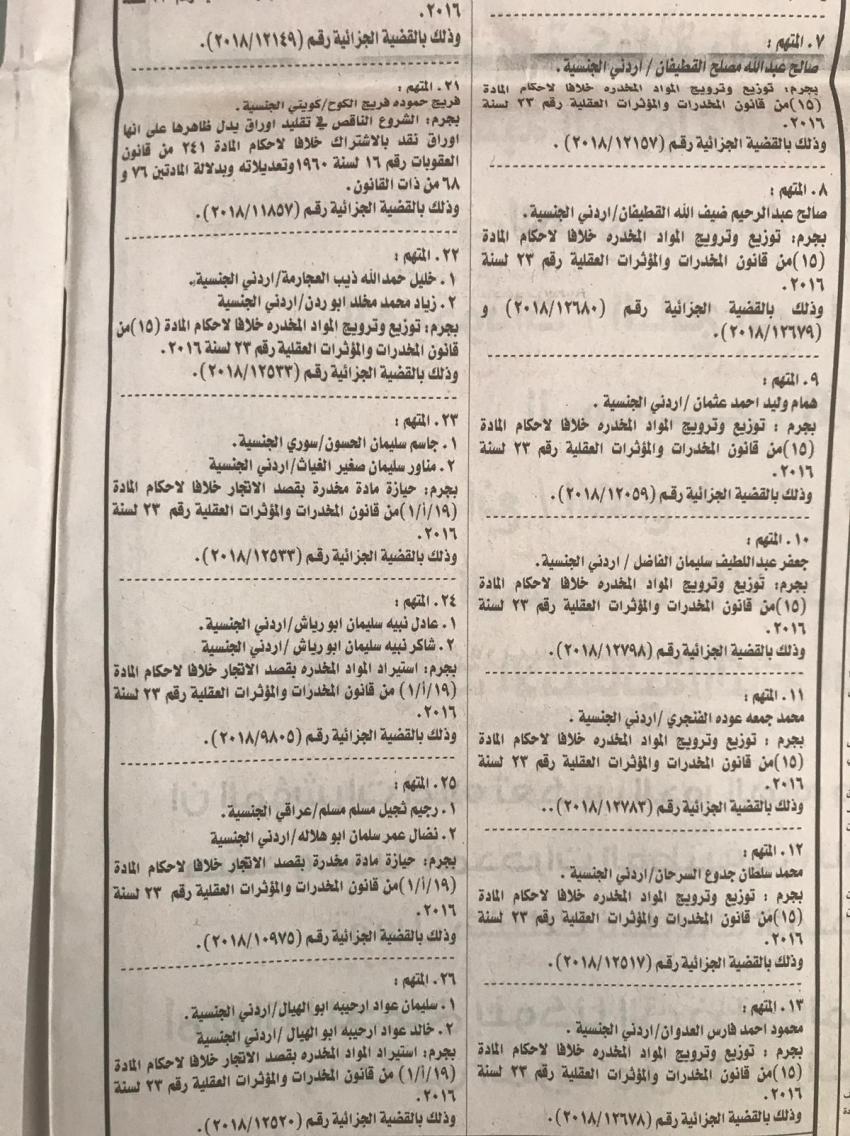 ٧. المتهم :
صالح عبدالله مصلح القطيفان / اردني الجنسية .
بجرم: توزيع وترويج المواد المخدره خلافا لاحكام المادة
(١٥)من قانون المخدرات والمؤثرات العقلية رقم ٢٣ لسنة
٢٠١٦.
وذلك بالقضية الجزائية رقم (٢٠١٨/١٢١٥٧) .
٨. المتهم :
صالح عبدالرحيم ضيف الله القطيفان/اردني الجنسية.
بجرم: توزيع وترويج المواد المخدره خلافا لاحكام المادة
(١٥)من قانون المخدرات والمؤثرات العقلية رقم ٢٣ لسنة
٢٠١٦.
وذلك بالقضية الجزائية رقم (٢٠١٨/١٢٦٨٠) و
(٢٠١٨/١٢٦٧٩).
٩. المتهم :
همام وليد احمد عثمان /اردني الجنسية .
بجرم : توزيع وترويج المواد المخدره خلافا لاحكام المادة
(١٥)من قانون المخدرات والمؤثرات العقلية رقم ٢٣ لسنة
٢٠١٦.
وذلك بالقضية الجزائية رقم (٢٠١٨/١٢٠٥٩).
١٠. المتهم :
جعفر عبداللطيف سليمان الفاضل / اردني الجنسية.
بجرم: توزيع وترويج المواد المخدره خلافا لاحكام المادة
(١٥)من قانون المخدرات والمؤثرات العقلية رقم ٢٣ لسنة
٢٠١٦.
وذلك بالقضية الجزائية رقم (٢٠١٨/١٢٧٩٨).
١١. المتهم :
محمد جمعه عوده الفنجري /اردني الجنسية .
بجرم : توزيع وترويج المواد المخدره خلافا لاحكام المادة
(١٥)من قانون المخدرات والمؤثرات العقلية رقم ٢٣ لسنة
٢٠١٦.
وذلك بالقضية الجزائية رقم (٢٠١٨/١٢٧٨٣)..
١٢. المتهم :
محمد سلطان جدوع السرحان/اردني الجنسية .
بجرم : توزيع وترويج المواد المخدره خلافا لاحكام المادة
(١٥)من قانون المخدرات والمؤثرات العقلية رقم ٢٣ لسنة
٢٠١٦.
وذلك بالقضية الجزائية رقم (٢٠١٨/١٢٥١٧).
١٣. المتهم :
محمود احمد فارس العدوان/اردني الجنسية .
بجرم : توزيع وترويج المواد المخدره خلافا لاحكام المادة
(١٥)من قانون المخدرات والمؤثرات العقلية رقم ٢٣ لسنة
٢٠١٦.
وذلك بالقضية الجزائية رقم (٢٠١٨/١٢٦٧٨).
٢٠١٦.
وذلك بالقضية الجزائية رقم (٢٠١٨/١٢١٤٩).
٢١. المتهم :
فريج حموده فريج الكوح/كويتي الجنسية .
بجرم: الشروع الناقص في تقليد اوراق يدل ظاهرها على انها
اوراق نقد بالاشتراك خلافا لاحكام المادة ٢٤١ من قانون
العقوبات رقم ١٦ لسنة ١٩٦٠وتعديلاته وبدلالة المادتين ٧٦ و
٦٨ من ذات القانون.
وذلك بالقضية الجزائية رقم (٢٠١٨/١١٨٥٧).
٢٢. المتهم :
١. خليل حمدالله ذيب العجارمة/اردني الجنسية.
٢. زياد محمد مخلد ابو ردن/اردني الجنسية
بجرم: توزيع وترويج المواد المخدره خلافا لاحكام المادة (١٥)من
قانون المخدرات والمؤثرات العقلية رقم ٢٣ لسنة ٢٠١٦.
وذلك بالقضية الجزائية رقم (٢٠١٨/١٢٥٣٣).
٢٣. المتهم :
١. جاسم سليمان الحسون/سوري الجنسية.
٢. مناور سليمان صغير الغياث/اردني الجنسية
بجرم: حيازة مادة مخدرة بقصد الاتجار خلافا لاحكام المادة
(١٩/أ/١)من قانون المخدرات والمؤثرات العقلية رقم ٢٣ لسنة
٢٠١٦.
وذلك بالقضية الجزائية رقم (٢٠١٨/١٢٥٣٣).
٢٤. المتهم :
١. عادل نبيه سليمان ابو رياش/اردني الجنسية.
٢. شاكر نبيه سليمان ابو رياش /اردني الجنسية
بجرم: استيراد المواد المخدره بقصد الاتجار خلافا لاحكام المادة
(١٩/أ/١) من قانون المخدرات والمؤثرات العقلية رقم ٢٣ لسنة
٢٠١٦.
وذلك بالقضية الجزائية رقم (٢٠١٨/٩٨٠٥).
٢٥. المتهم :
١. رحيم ثجيل مسلم مسلم/عراقي الجنسية.
٢. نضال عمر سلمان ابو هلاله/اردني الجنسية
بجرم: حيازة مادة مخدرة بقصد الاتجار خلافا لاحكام المادة
(١٩/أ/١)من قانون المخدرات والمؤثرات العقلية رقم ٢٣ لسنة
٢٠١٦.
وذلك بالقضية الجزائية رقم (٢٠١٨/١٠٩٧٥).
٢٦. المتهم :
١. سليمان عواد ارحيبه ابو الهيال/اردني الجنسية.
٢. خالد عواد ارحيبه ابو الهيال /اردني الجنسية
بجرم: استيراد المواد المخدره بقصد الاتجار خلافا لاحكام المادة
(١٩/أ/١) من قانون المخدرات والمؤثرات العقلية رقم ٢٣ لسنة
٢٠١٦.
وذلك بالقضية الجزائية رقم (٢٠١٨/١٢٥٢٠).